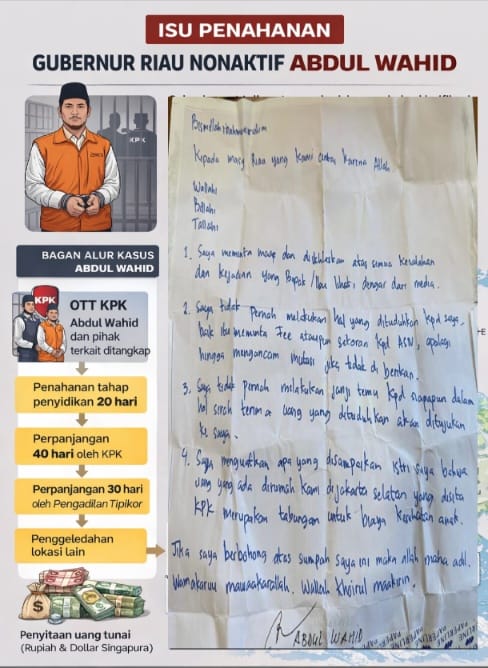 ISU PENAHANAN
GUBERNUR RIAU NONAKTIF ABDUL WAHID
KPK
BAGAN ALUR KASUS
ABDUL WAHID
KPK
OTT KPK
Abdul Wahid
dan pihak
terkait ditangkap
Penahanan tahap
penyidikan 20 hari
Perpanjangan
40 hari oleh KPK
Perpanjangan 30 hari
oleh Pengadilan Tipikor
Penggeledahan
lokasi lain
Penyitaan uang tunai
(Rupiah & Dollar Singapura)
Kepada masy Riau yang kami cintai karena Allah
Wallahi
Billahi
Tallahi
1. Saya meminta maaf dan diikhlaskan atas semua kesalahan
dan kejadian yang Bapak/Ibu lihat, dengar dari media.
2. Saya tidak Pernah melakukan hal yang dituduhkan kpd saya,
baik itu meminta Fee ataupun setoran kpd ASN, apalagi
hingga mengancam mutasi jika tidak di berikan.
3. Saya tidak pernah melakukan janji temu kpd siapapun dalam
hal serah terima uang yang dituduhkan akan ditujukan
ke saya.
4. Saya menguatkan apa yang disampaikan istri saya bahwa
uang yang ada dirumah kami di jakarta selatan yang disita
KPK merupakan tabungan untuk biaya kesehatan anak.
Jika saya berbohong atas sumpah saya ini maka allah maha adil.
Wamakaruu wallah khoirul maakirin.
ABDUL WAHID
PAPERLINE